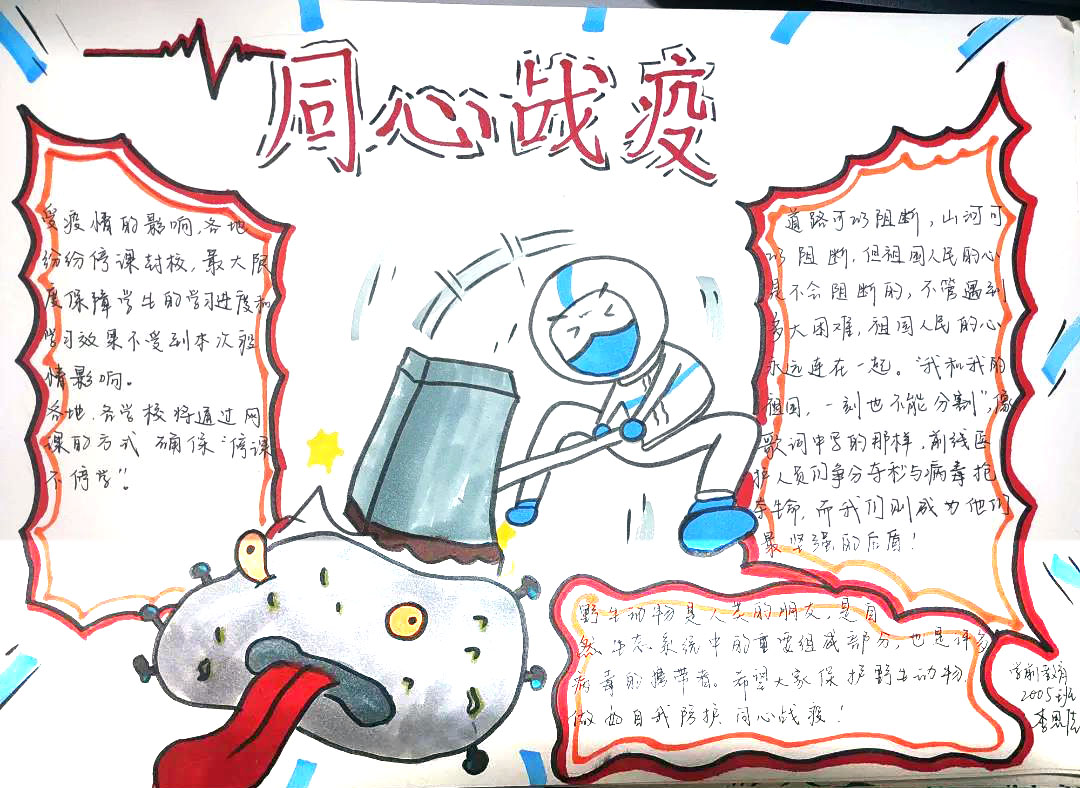 同心战疫
受疫情的影响,各地
纷纷停课封校,最大限
度保障学生的学习进度和
学习效果不受到本次疫
情影响。
各地、各学校将通过网
课的方式 确保“停课
不停学”。
道路可以阻断,山河可
以阻断,但祖国人民的心
是不会阻断的,不管遇到
多大困难,祖国人民的心
永远连在一起。“我和我的
祖国,一刻也不能分割”,像
歌词中写的那样,前线医
护人员们争分夺秒与病毒抢
夺生命,而我们则成为他们
最坚强的后盾!
野生动物是人类的朋友,是自
然生态系统中的重要组成部分,也是许多
病毒的携带者。希望大家保护野生动物,
做好自我防护,同心战疫!
学前教育
2005班
李思